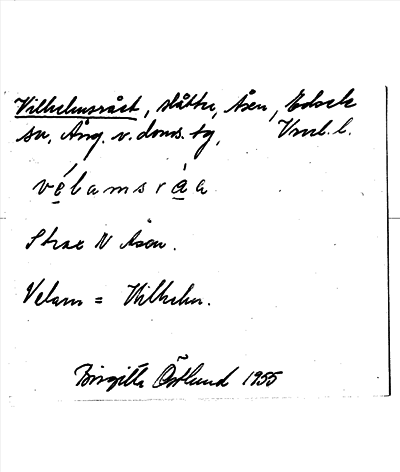 Vilhelmsråset, slåtter, Åsen, Edsele
sn, Ång. v. doms. tg, Vrml. l.
vélamsråa
Strax N Åsen.
Velam = Vilhelm.
Birgitta Östlund 1955